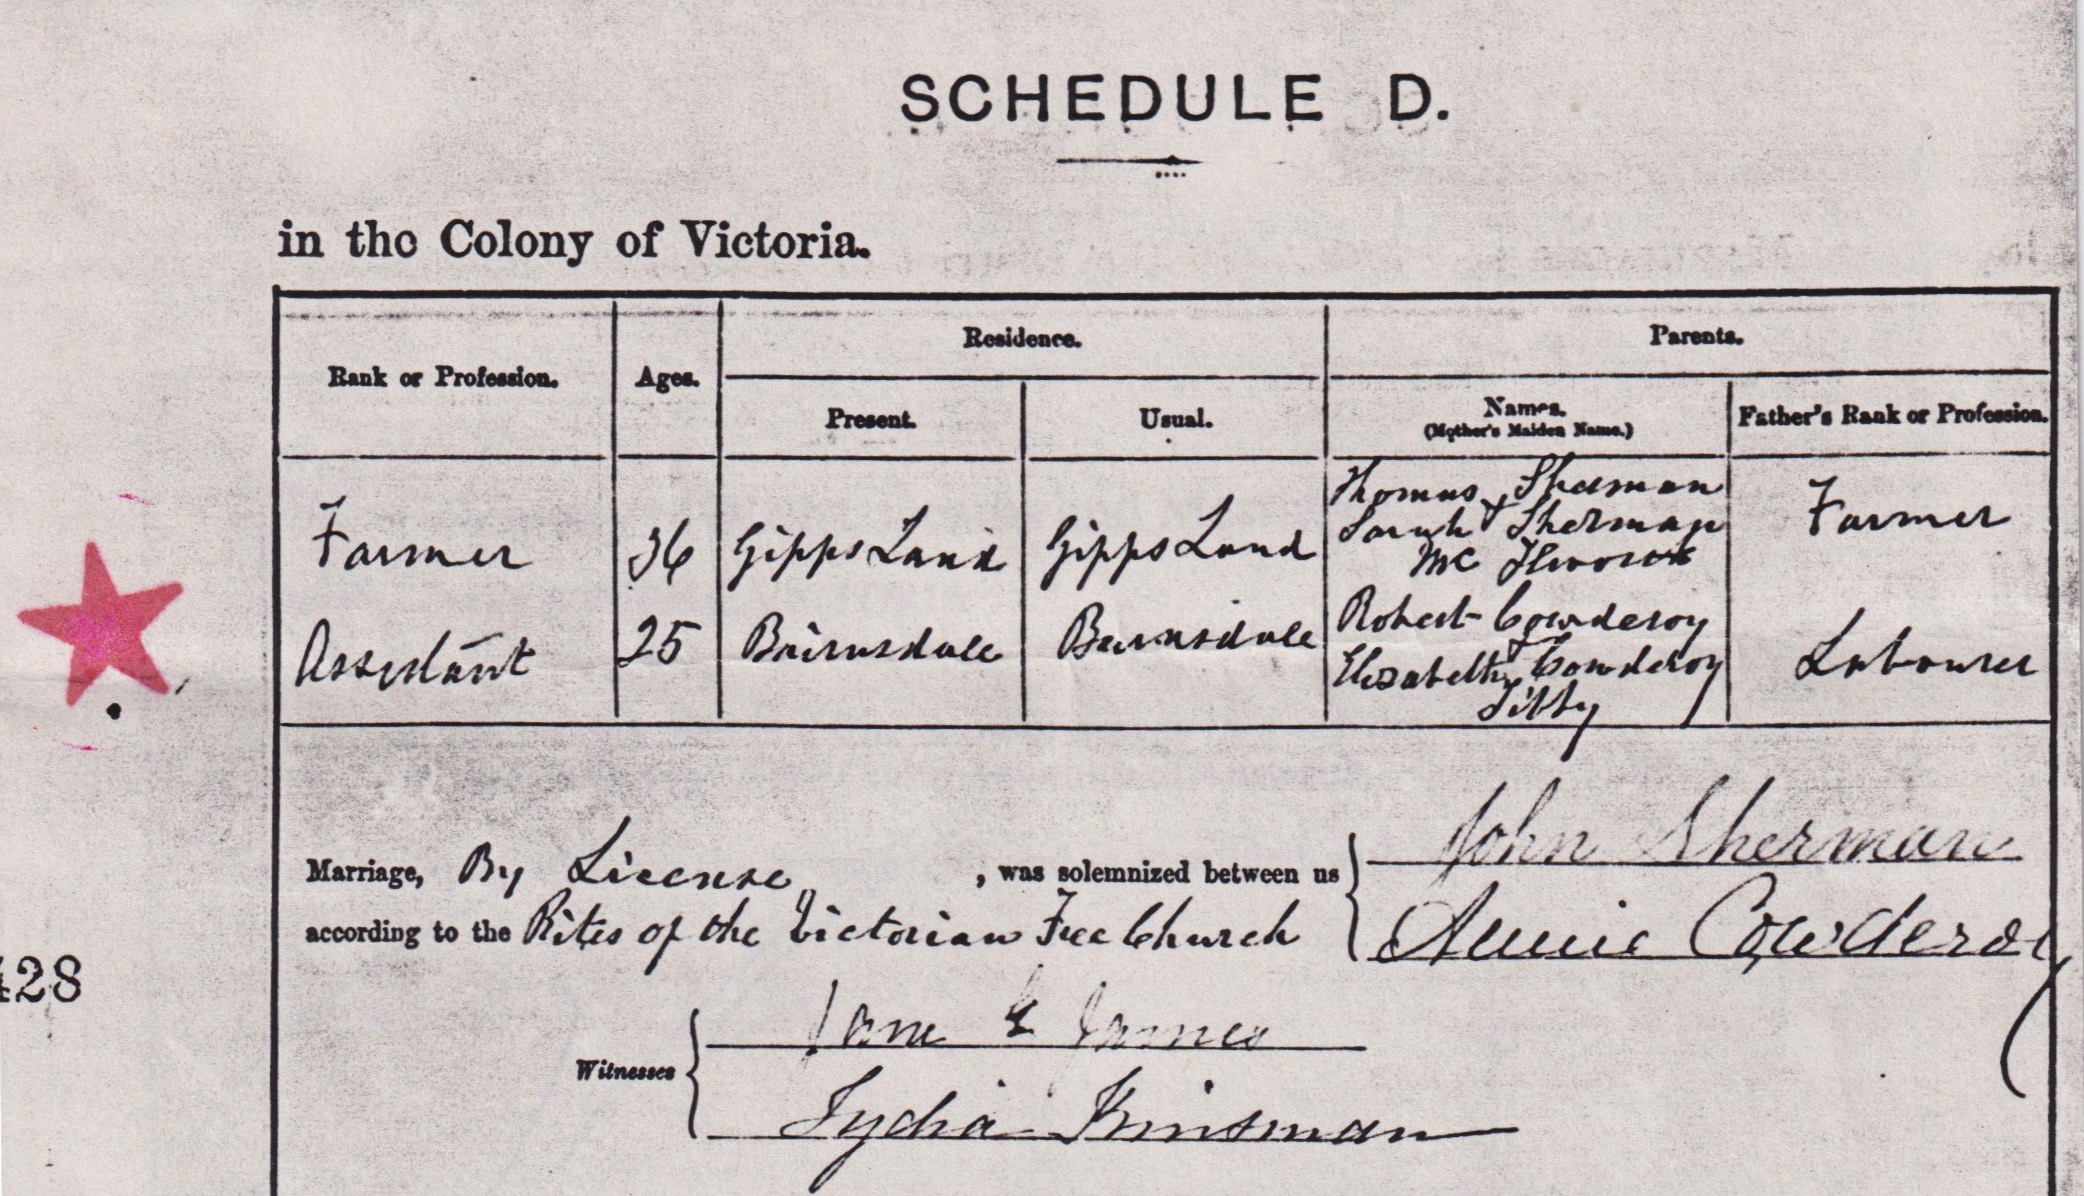 SCHEDULE D.
in the Colony of Victoria.
Rank or Profession. Ages. Residence. Parents.
Present. Usual. Names. Father's Rank or Profession.
(Mother's Maiden Name.)
Farmer 36 Gipps Land Gipps Land Thomas Sherman Farmer
Sarah + Sherman
Mc
Assistant 25 Bairnsdale Bairnsdale Robert Cowderoy Labourer
+
Elizabeth Cowderoy
Tibby
Marriage, By License, was solemnized between us John Sherman
according to the Rites of the Victorian Free Church Annie Cowderoy
428
Witnesses Jane E James
Lydia Kinsman